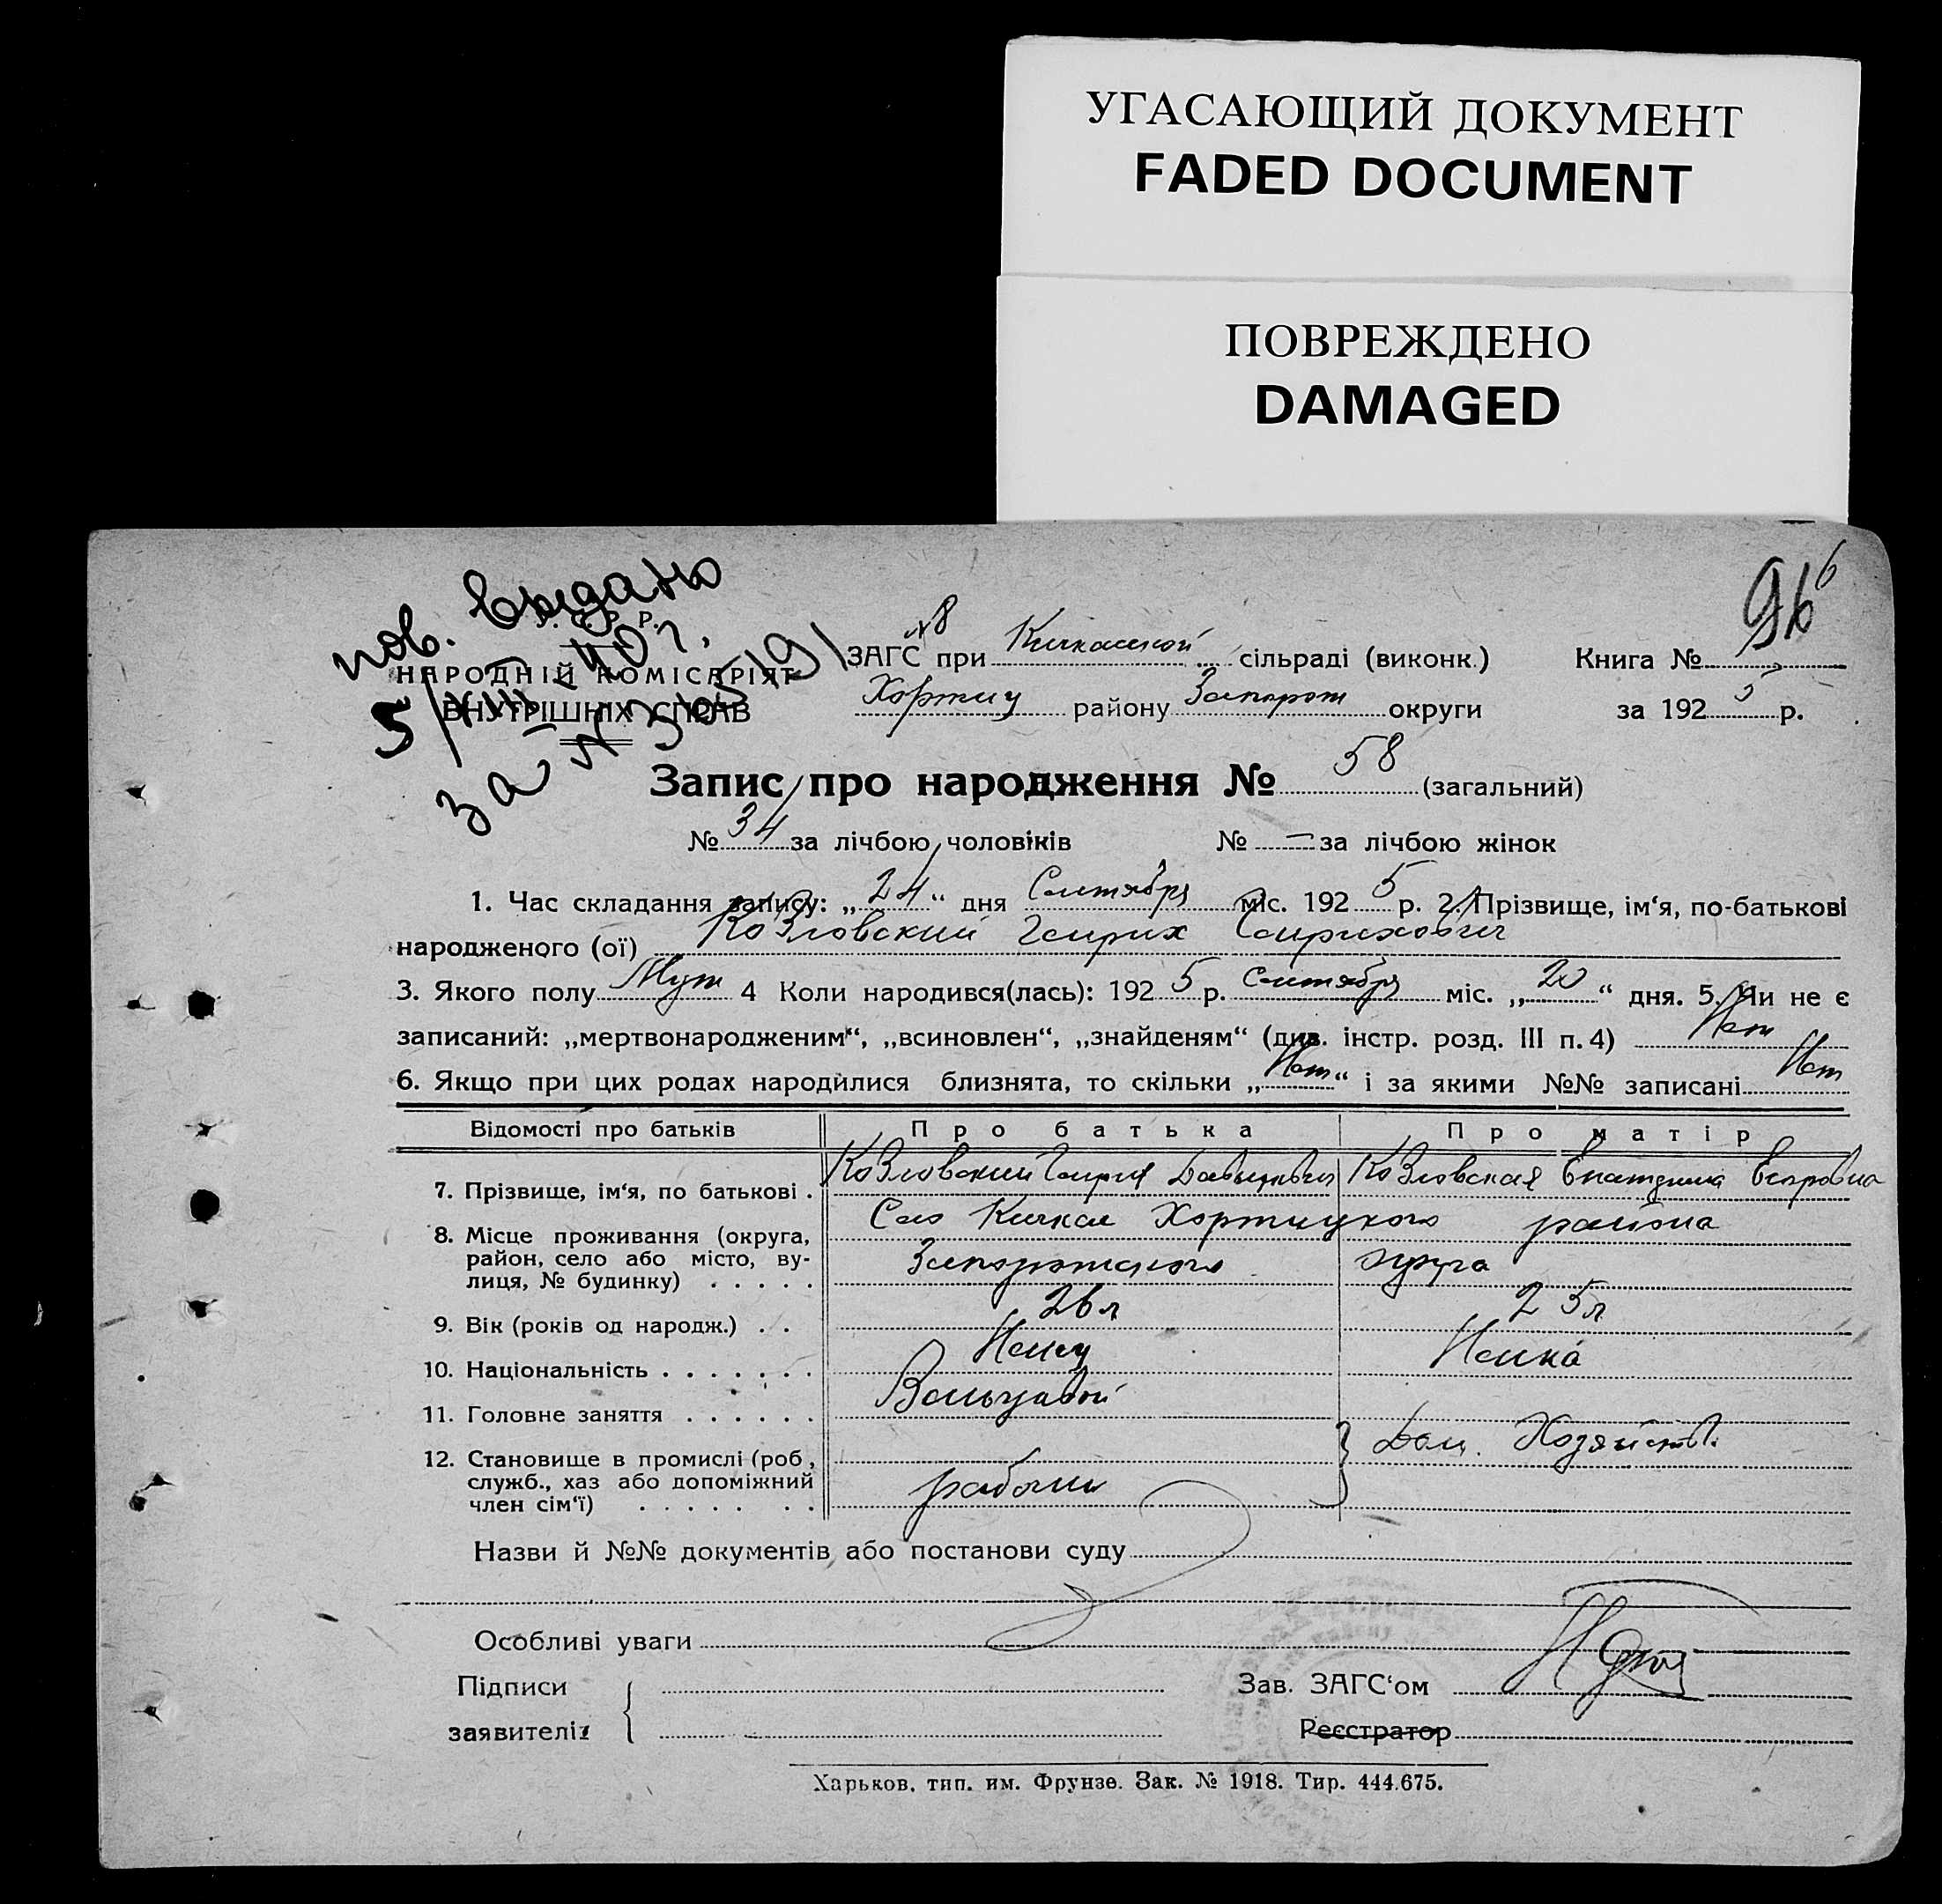 УГАСАЮЩИЙ ДОКУМЕНТ
FADED DOCUMENT
ПОВРЕЖДЕНО
DAMAGED
пов. выдано
5/XIII 40 г.
за №
96
У. С. Р. Р.
НАРОДНІЙ КОМІСАРІЯТ
ВНУТРІШНІХ СПРАВ
ЗАГС при Кичкасской сільраді (виконк.) Книга №
Хортиц району Запорож округи за 1925 р.
Запис про народження № 58 (загальний)
№ 34 за лічбою чоловіків № — за лічбою жінок
1. Час складання запису: „24“ дня Сентября міс. 1925 р. 2. Прізвище, ім‘я, по-батькові
народженого (ої) Козловский Генрих Генрихович
3. Якого полу Муж 4 Коли народився(лась): 1925 р. Сентября міс. „20“ дня. 5. Чи не є
записаний: „мертвонародженим“, „всиновлен“, „знайденям“ (див. інстр. розд. III п. 4) Нет
6. Якщо при цих родах народилися близнята, то скільки „Нет“ і за якими №№ записані Нет
Відомості про батьків Про батька Про матір
7. Прізвище, ім‘я, по батькові . Козловский Генрих Давидович Козловская Екатерина
8. Місце проживання (округа, район, село або місто, вулиця, № будинку) . . . . . Село Кичкас Хортицкого района
Запорожского округа
9. Вік (років од народж.) . . 26 л 25 л
10. Національність . . . . . . . Немец Немка
11. Головне заняття . . . . . . Вальцевой
12. Становище в промислі (роб., служб., хаз або допоміжний член сім‘ї) . . . . . . . . рабочий Дом. Хозяйств.
Назви й №№ документів або постанови суду
Особливі уваги
Підписи
заявителів
Зав. ЗАГС‘ом
Реєстратор
Харьков, тип. им. Фрунзе. Зак. № 1918. Тир. 444.675.